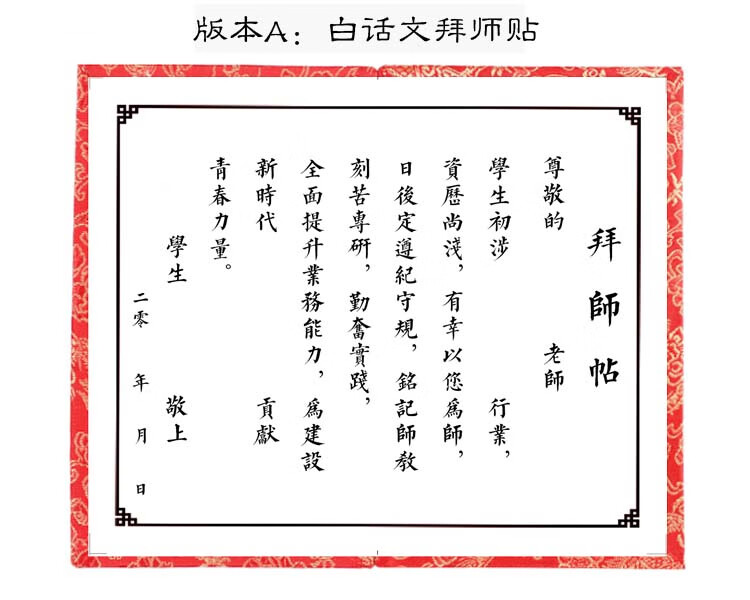 版本A：白话文拜师贴
拜師帖
尊敬的 老師
學生初涉 行業，
資歷尚淺，有幸以您爲師，
日後定遵紀守規，銘記師教
刻苦專研，勤奮實踐，
全面提升業務能力，爲建設
新時代 貢獻
青春力量。
學生 敬上
二零 年 月 日